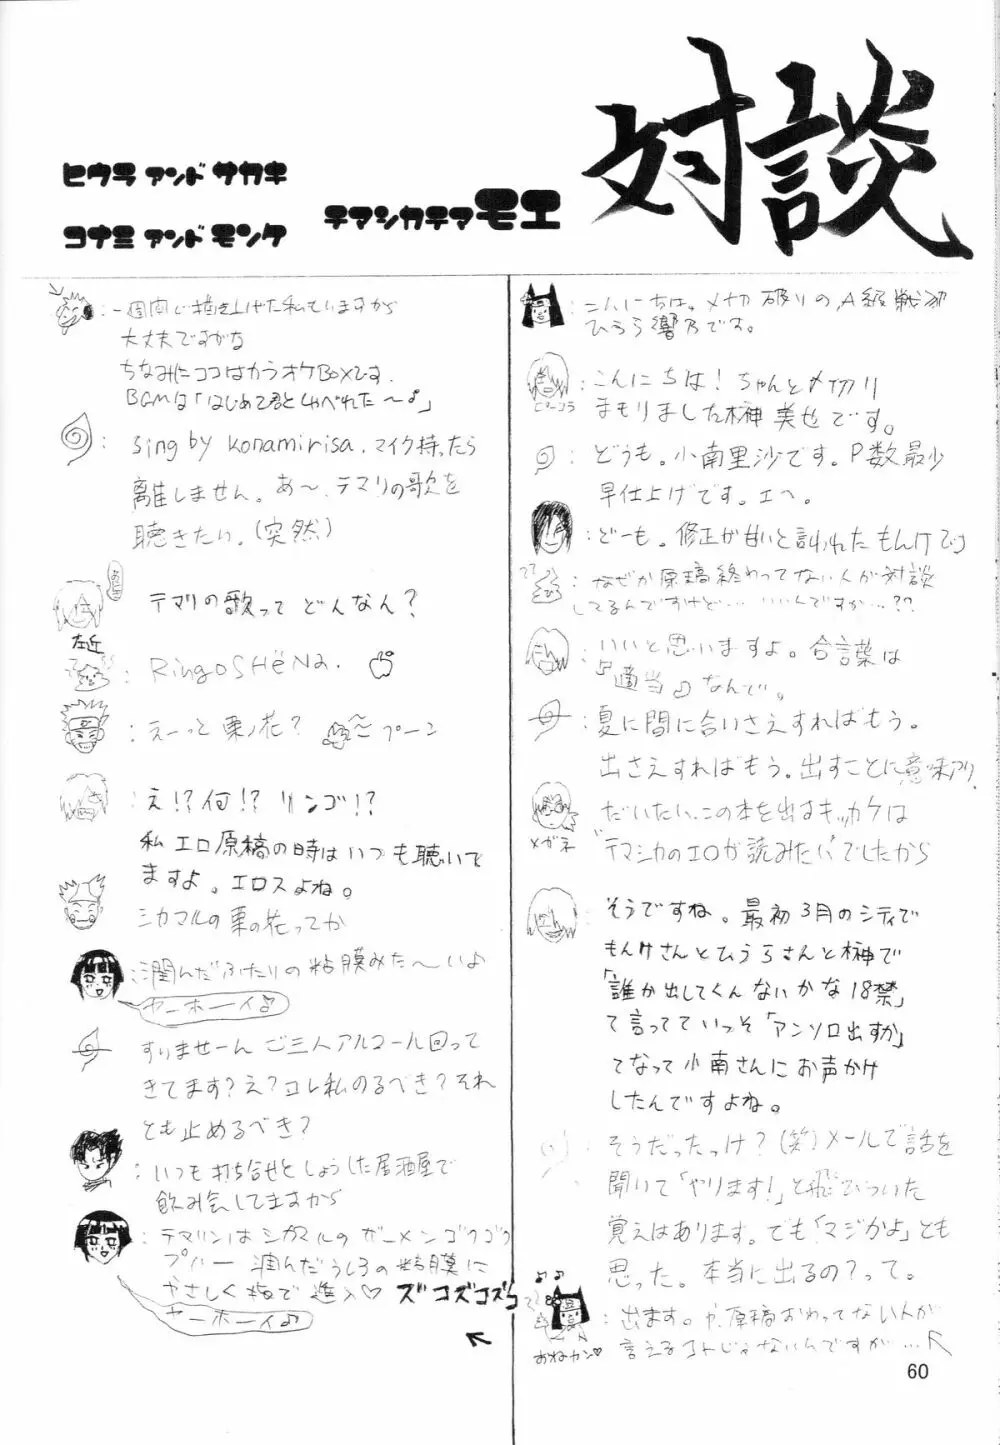 対談
テマシカテマモエ
ヒウラ アンド サカキ
コナミ アンド モンケ
:こんにちは。メ切破りのA級戦犯
ひうら響乃です。
:こんにちは！ちゃんとメ切り
まもりました榊美也です。
:どうも。小南里沙です。P数最少
早仕上げです。エヘ。
:どーも。修正が甘いと言われたもんけです
:なぜか原稿終わってない人が対談
してるんですけど…いいんですか…??
:いいと思いますよ。合言葉は
『適当♪』なんで。
:夏に間に合いさえすればもう。
出さえすればもう。出すことに意味アリ。
メガネ
だいたい、この本を出すキッカケは
"テマシカのエロが読みたい"でしたから
:そうですね。最初3月のシティで
もんけさんとひうらさんと榊で
「誰か出してくんないかな18禁」
て言ってていっそ「アンソロ出すか」
てなって小南さんにお声かけ
したんですよね。
:そうだったっけ？(笑)メールで話を
聞いて「やります！」と飛びついた
覚えはあります。でも「マジかよ」とも
思った。本当に出るの？って。
:出ます。か、原稿おわってない人が
言えるコトじゃないんですが…
おねカン♡
:一週間で描き上げた私もいますから
大丈夫ですがな
ちなみにココはカラオケBOXです。
BGMは「はじめて君としゃべれた〜♪」
:sing by konamirisa. マイク持ったら
離しません。あ〜、テマリの歌を
聴きたい。(突然)
テマリの歌って どんなん？
左近
:RingoSHёNa.
:えーっと栗ノ花？ プーン
:え!?何!? リンゴ!?
私エロ原稿の時はいつも聴いて
ますよ。エロスよね。
シカマルの栗の花ってか
:潤んだふたりの粘膜みた〜いよ
ヤーホーイ♪
すいませーん ご三人アルコール回って
きてます？え？コレ私のるべき？それ
とも止めるべき？
:いつも打ち合せとしょうした居酒屋で
飲み会してますから
:テマリンはシカマルのザーメンゴクゴク
プハー 潤んだうしろの粘膜に
やさしく指で進入♡ ズコズコズコ
ヤーホーイ♪
60